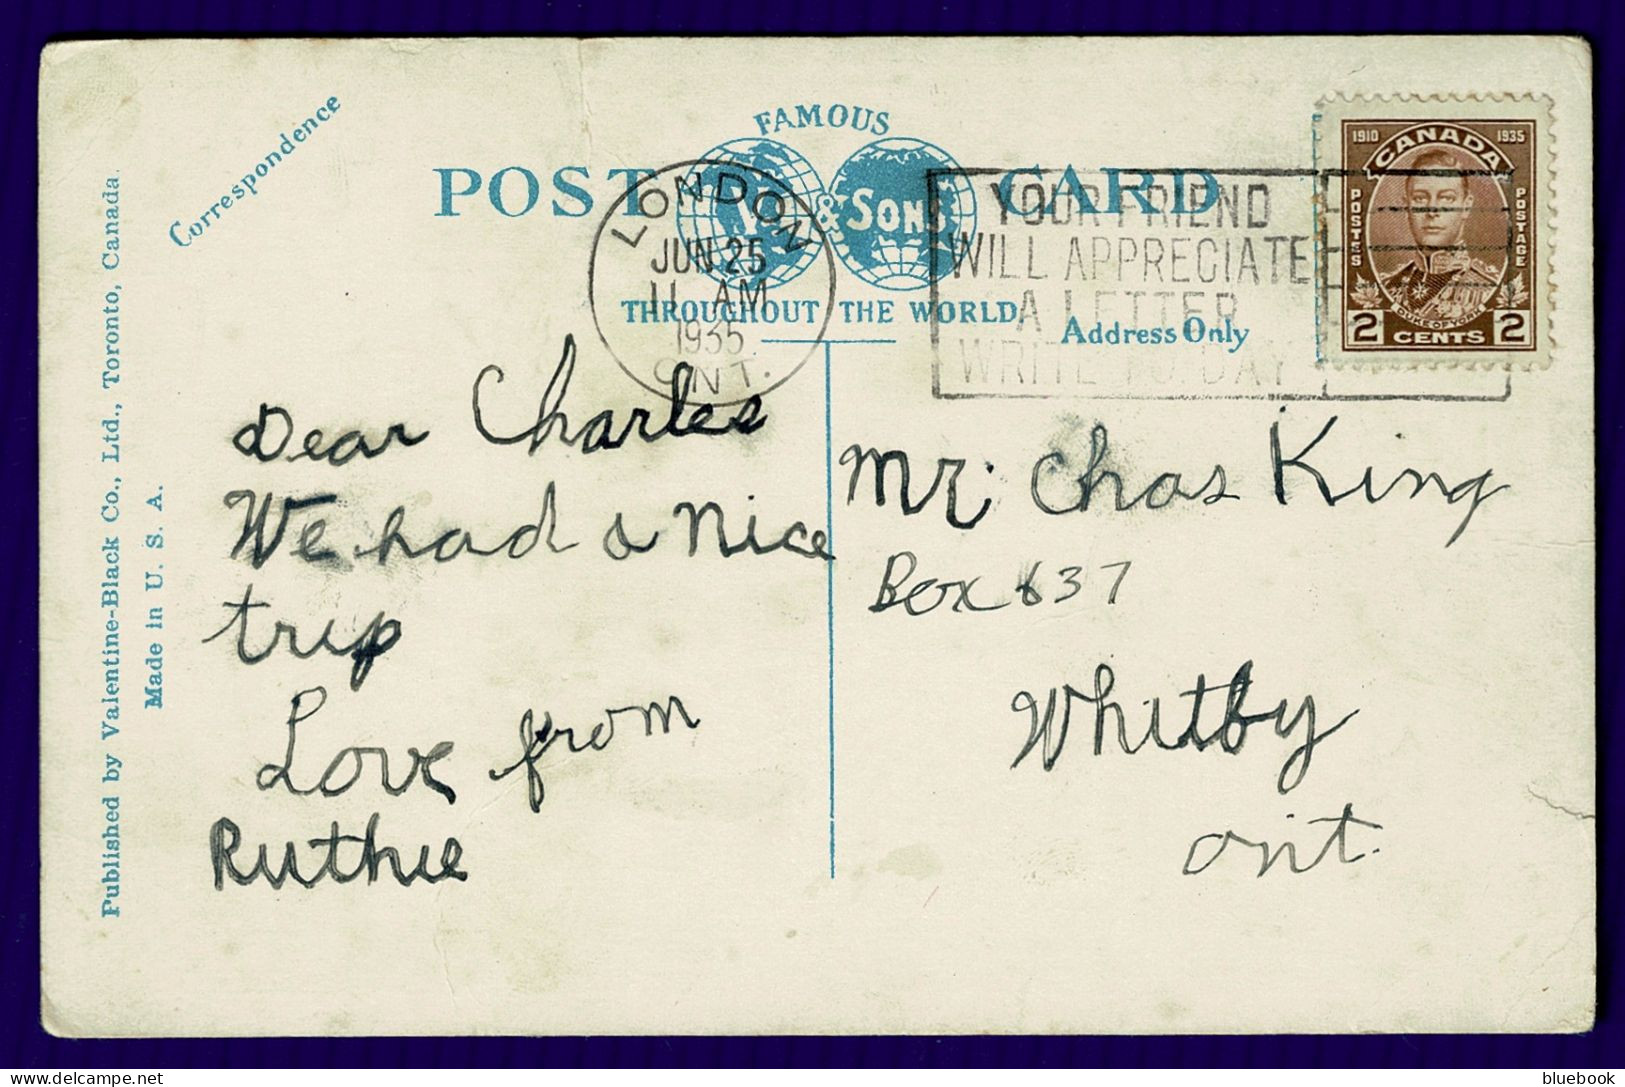 Correspondence
POST CARD
FAMOUS
V. & SONS
THROUGHOUT THE WORLD
Address Only
LONDON
JUN 25
11 AM
1935
ONT.
YOUR FRIEND
WILL APPRECIATE
A LETTER
WRITE TO-DAY
1910 CANADA 1935
POSTES POSTAGE
DUKE OF YORK
2 CENTS 2
Published by Valentine-Black Co., Ltd., Toronto, Canada.
Made in U. S. A.
Dear Charles
We had a nice
trip
Love from
Ruthie
Mr. Chas King
Box 637
Whitby
Ont.
bluebook